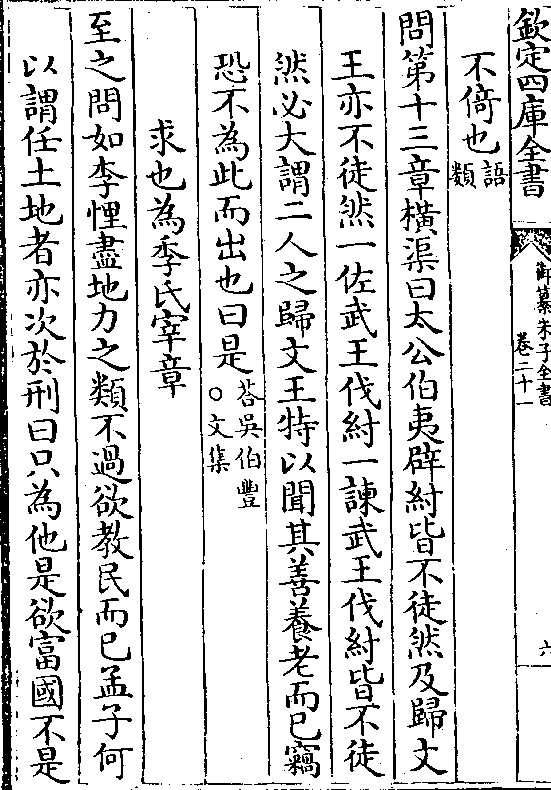 欽定四庫全書
御纂朱子全書
卷二十一
六
不倚也語類
問第十三章橫渠曰太公伯夷辟紂皆不徒然及歸文
王亦不徒然一佐武王伐紂一諫武王伐紂皆不徒
然必大謂二人之歸文王特以聞其善養老而已竊
恐不為此而出也曰是答吳伯豐○文集
求也為季氏宰章
至之問如李悝盡地力之類不過欲教民而已孟子何
以謂任土地者亦次於刑曰只為他是欲富國不是